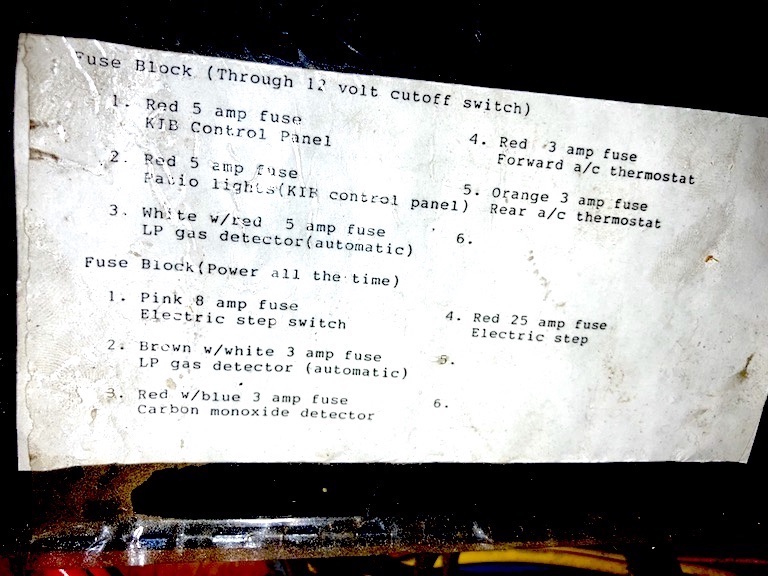 Fuse Block (Through 12 volt cutoff switch)
1. Red 5 amp fuse
KIB Control Panel
2. Red 5 amp fuse
Patio lights(KIB control panel)
3. White w/red 5 amp fuse
LP gas detector(automatic)
4. Red 3 amp fuse
Forward a/c thermostat
5. Orange 3 amp fuse
Rear a/c thermostat
6.
Fuse Block(Power all the time)
1. Pink 8 amp fuse
Electric step switch
2. Brown w/white 3 amp fuse
LP gas detector (automatic)
3. Red w/blue 3 amp fuse
Carbon monoxide detector
4. Red 25 amp fuse
Electric step
5.
6.